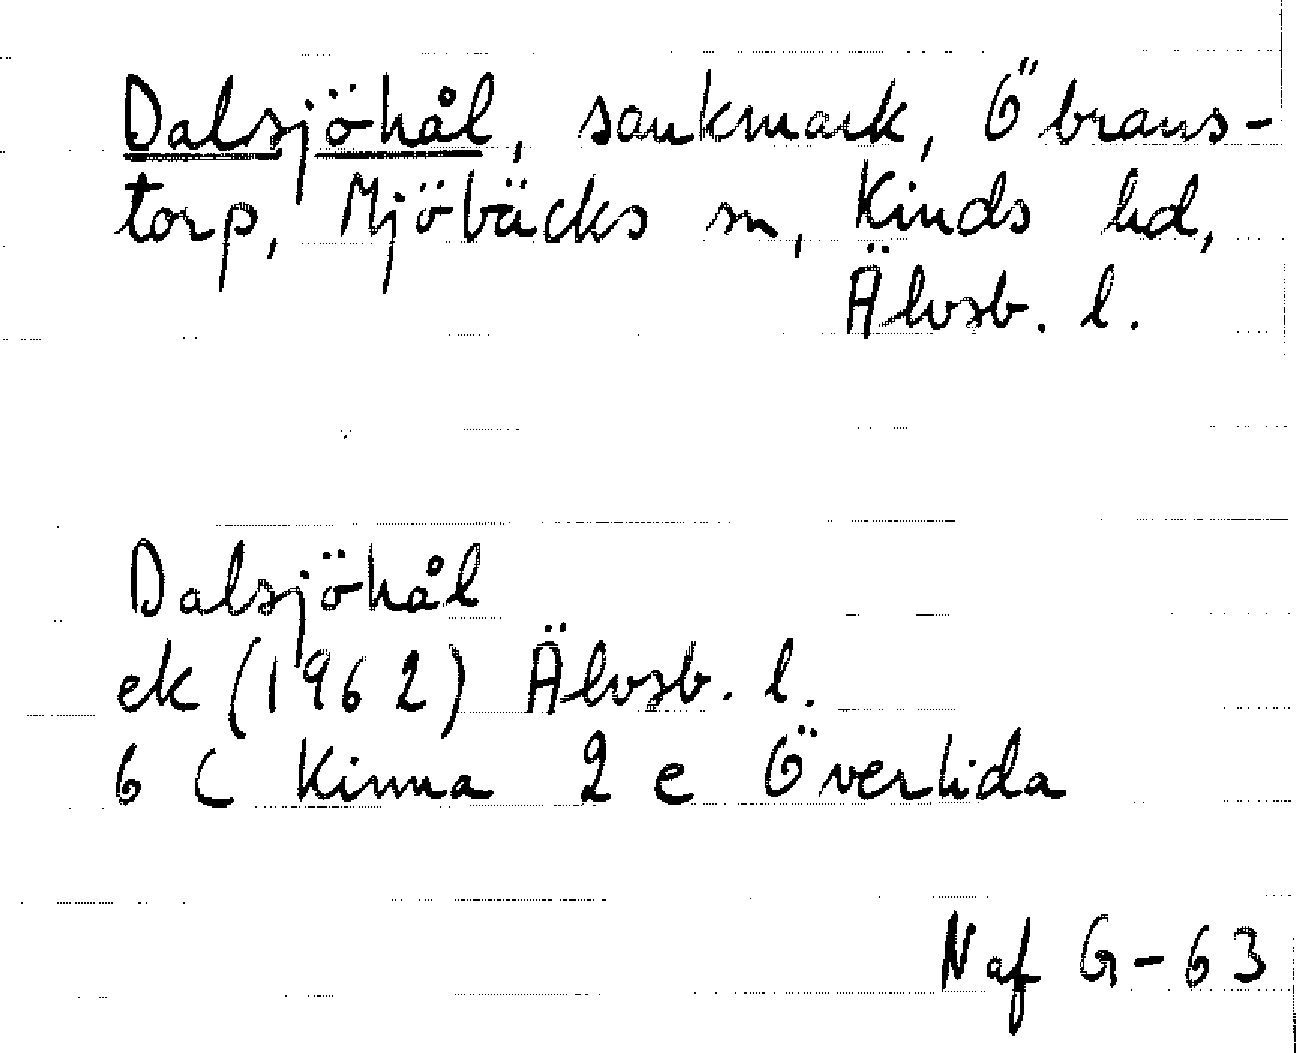 Dalsjöhål, sankmark, Öbrans-
torp, Mjöbäcks sn, Kinds hd,
Älvsb. l.
Dalsjöhål
ek (1962) Älvsb. l.
6 C Kinna 2 e Överlida
Naf G-63